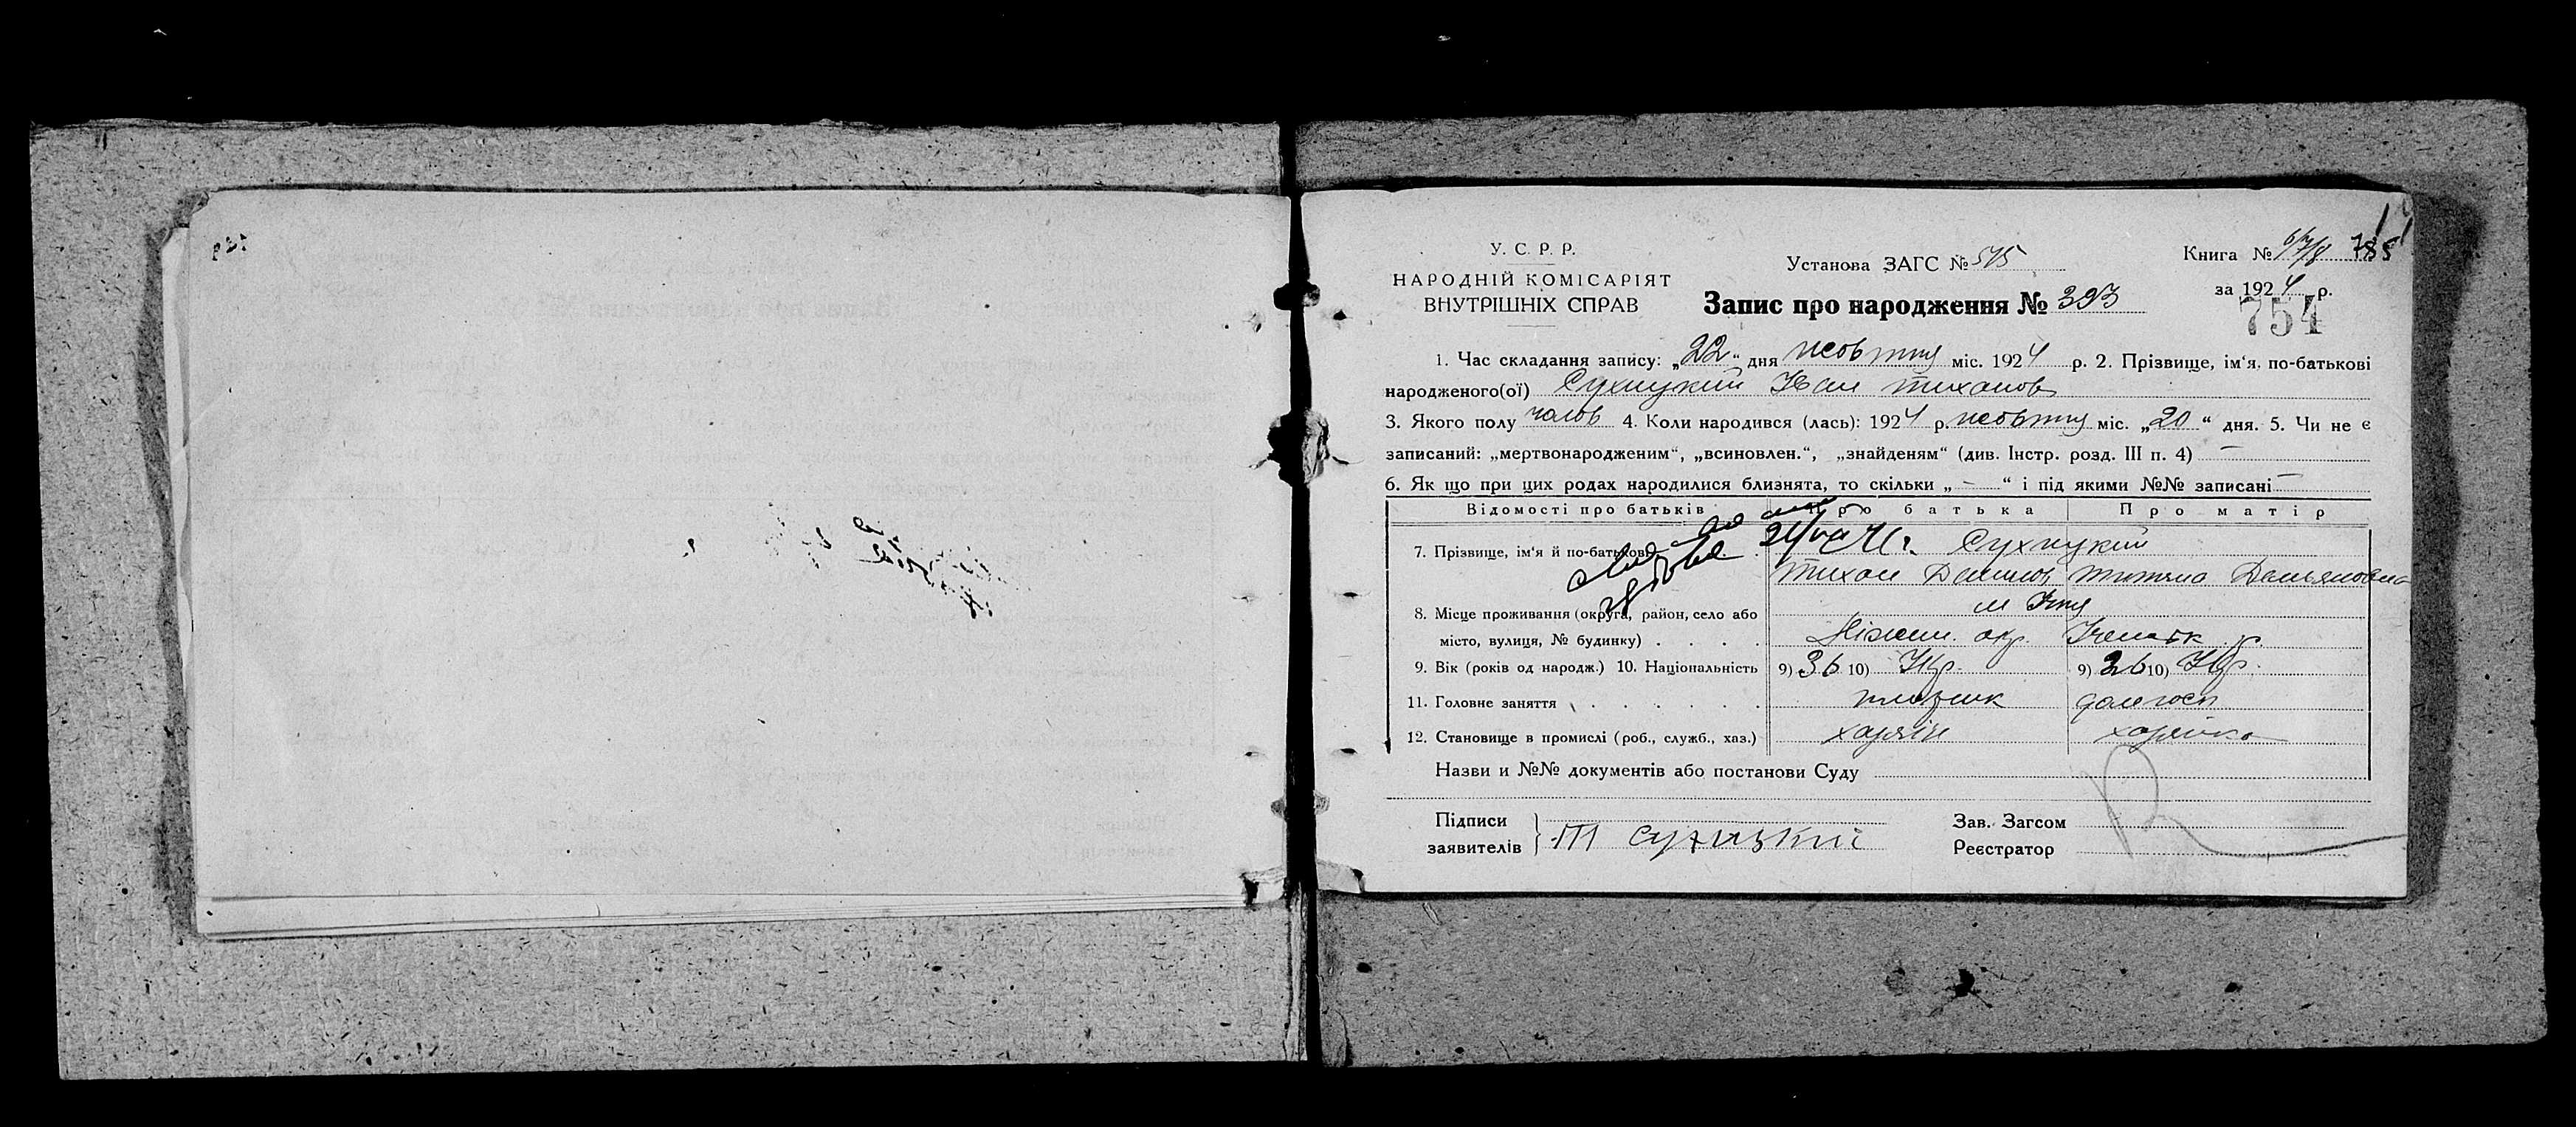 У. С. Р. Р.
НАРОДНІЙ КОМІСАРІЯТ
ВНУТРІШНІХ СПРАВ
Установа ЗАГС № 515
Запис про народження № 393
Книга № 785
за 1924 р.
754
1. Час складання запису: „22" дня жовтня міс. 1924 р. 2. Прізвище, ім'я, по-батькові
народженого(ої) Сухицкий Іван Тихонов
3. Якого полу чолов 4. Коли народився (лась): 1924 р. жовтня міс. „20" дня. 5. Чи не є
записаний: „мертвонародженим", „всиновлен.", „знайденям" (див. Інстр. розд. III п. 4) —
6. Як що при цих родах народилися близнята, то скільки „ — " і під якими №№ записані —
Відомості про батьків Про батька Про матір
7. Прізвище, ім'я й по-батькові Сухицкий
Тихон Тетяна
8. Місце проживання (округа, район, село або м Ічня
місто, вулиця, № будинку) . . . . Ніжен. окр. Іченськ р.
9. Вік (років од народж.) 10. Національність 9) 36 10) Укр. 9) 26 10) Укр.
11. Головне заняття . . . . . .
12. Становище в промислі (роб., служб., хаз.) хазяїн хазяйка
Назви и №№ документів або постанови Суду
Підписи
заявителів Т Сухицкий
Зав. Загсом
Реєстратор